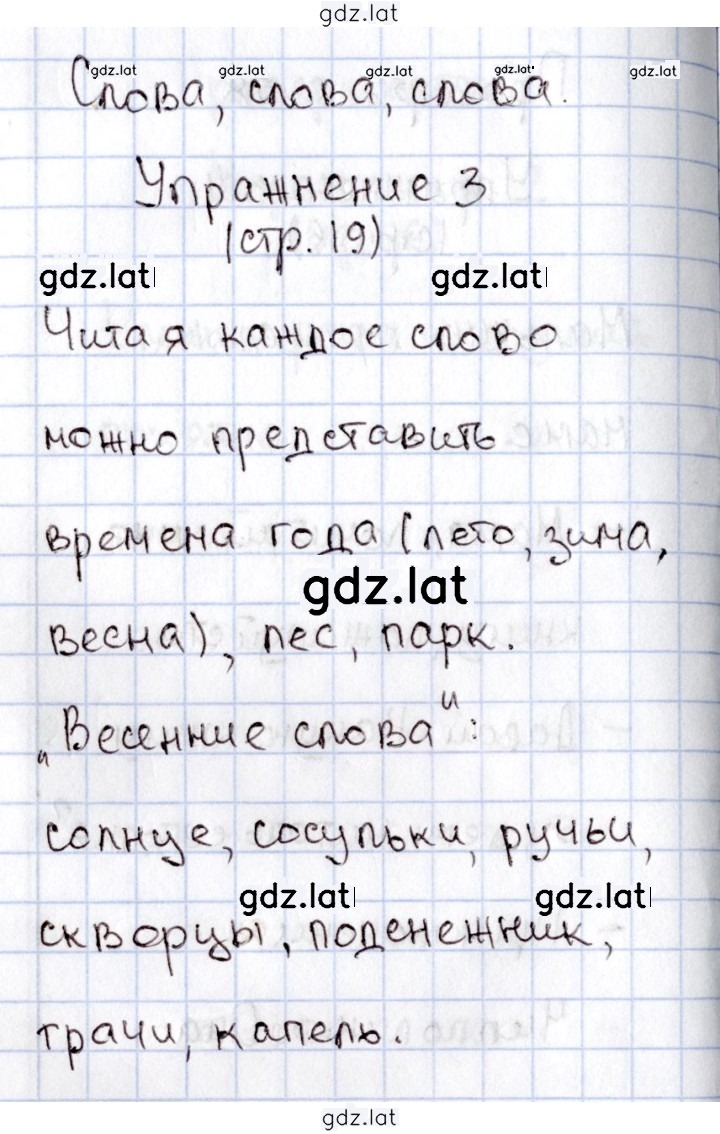 gdz.lat
gdz.lat gdz.lat gdz.lat gdz.lat gdz.lat
Слова, слова, слова.
Упражнение 3
(стр. 19)
gdz.lat gdz.lat
Читая каждое слово
можно представить
времена года (лето, зима,
gdz.lat
весна), пес, парк.
„Весенние слова“:
солнце, сосульки, ручьи,
gdz.lat gdz.lat
скворцы, поденежник,
трачи, капель.
gdz.lat